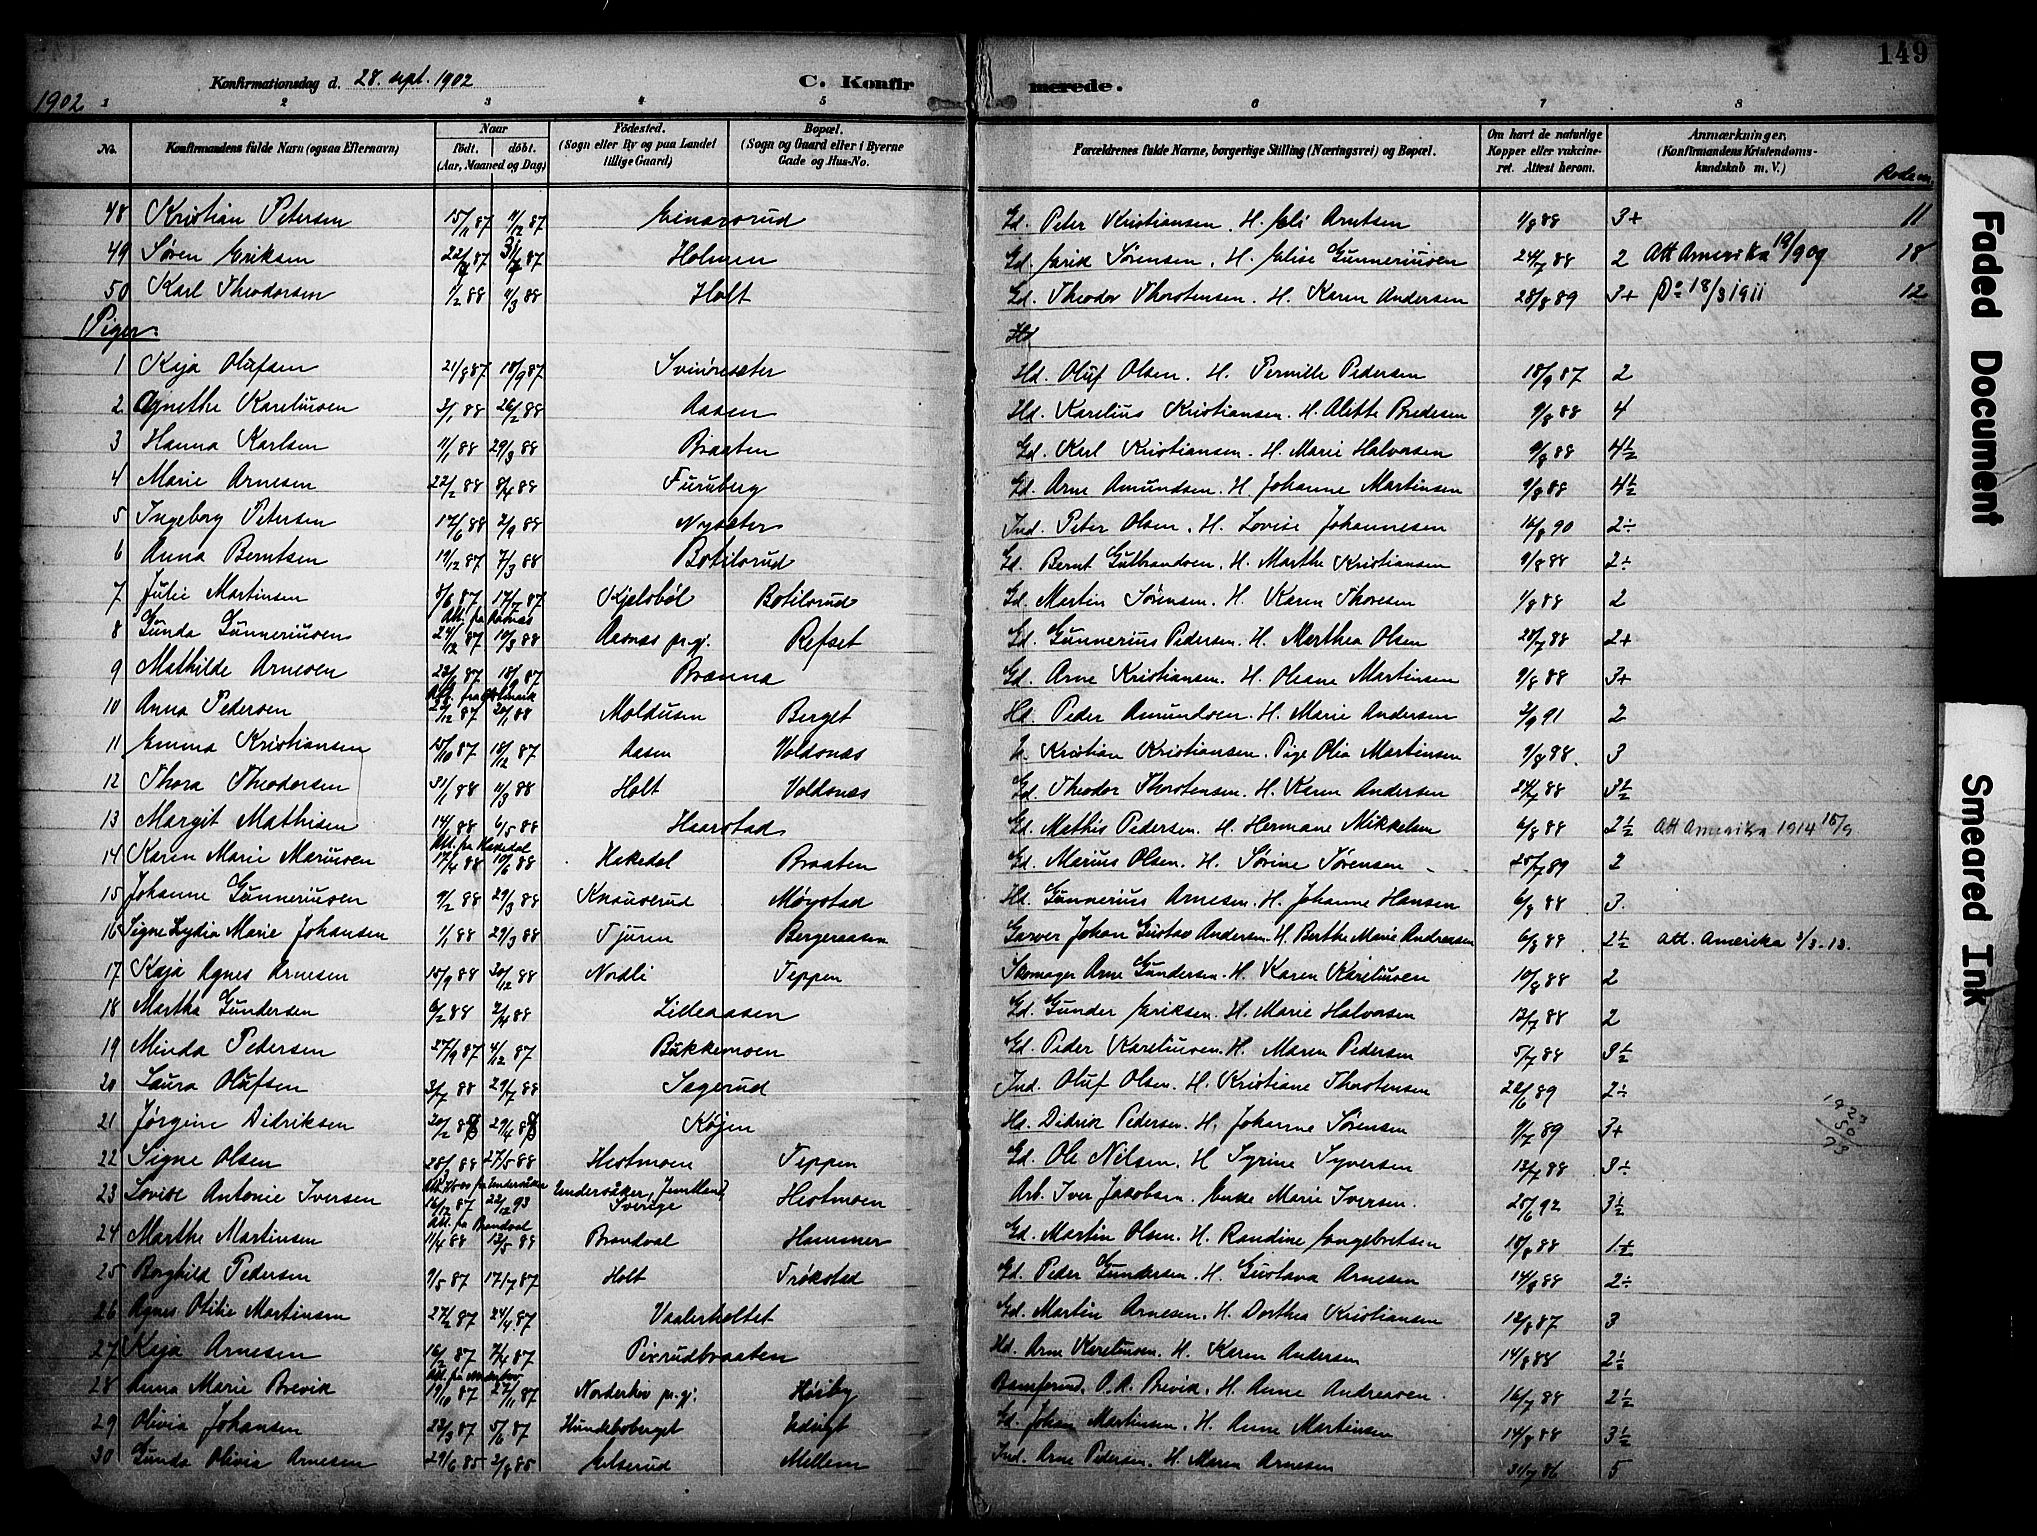 149
Konfirmationsdag d. 28. sept. 1902 C. Konfirmerede.
1902 1 2 3 4 5 6 7 8
No. Konfirmandens fulde Navn (ogsaa Efternavn) Naar født. døbt. (Aar, Maaned og Dag) Fødested. (Sogn eller By og paa Landet tillige Gaard) Bopæl. (Sogn og Gaard eller i Byerne Gade og Hus-No. Forældrenes fulde Navne, borgerlige Stilling (Næringsvei) og Bopæl. Om havt de naturlige Kopper eller vakcineret. Attest herom. Anmærkninger. (Konfirmandens Kristendomskundskab m. V.)
48 Kristian Petersen 15/11 87 11/12 87 Einarsrud Gd. Peter Kristiansen. H. Eli Arntsen 1/8 88 3+ 11
49 Søren Eriksen 22/7 87 31/7 87 Holmen Gd. Erik Sørensen. H. Elise Gunneriusen 24/7 88 2 Att Amerika 19/3 09 18
50 Karl Theodorsen 1/2 88 11/3 88 Holt Gd. Theodor Thorstensen. H. Karen Andersen 28/8 89 3+ Do 18/3 1911 12
Piger. Hd
1 Kaja Olufsen 21/8 87 18/9 87 Svinøresæter Hd. Oluf Olsen. H. Pernille Pedersen 18/9 87 2
2 Agnethe Kareliusen 3/1 88 26/2 88 Aasen Hd. Karelius Kristiansen. H. Alette Bredesen 9/8 88 4
3 Hanna Karlsen 11/1 88 29/3 88 Braaten Gd. Karl Kristiansen. H. Marie Halvorsen 9/8 88 4½
4 Marie Arnesen 22/2 88 8/4 88 Furuberg Gd. Arne Amundsen. H. Johanne Martinsen 9/8 88 4½
5 Ingeborg Petersen 17/6 88 2/9 88 Nysæter Ind. Peter Olsen. H. Lovise Johannesen 16/8 90 2÷
6 Anna Berntsen 19/12 87 7/3 88 Botilsrud Gd. Bernt Gulbrandsen. H. Marthe Kristiansen 9/8 88 2÷
7 Julie Martinsen 5/6 87 17/7 87 Kjølsbøl Botilsrud Gd. Martin Sørensen. H. Karen Thoresen 1/8 88 2
Att. fra Aasnæs
8 Gunda Gunneriusen 24/12 87 19/3 88 Aasnæs prgj. Refset Gd. Gunnerius Pedersen. H. Marthea Olsen 28/7 88 2+
9 Mathilde Arnesen 23/8 87 18/9 87 Brænna Gd. Arne Kristiansen. H. Oleane Martinsen 9/8 88 3+
10 Anna Pedersen 22/12 87 20/1 88 Moldusen Berget Hd Peder Amundsen. H. Marie Andersen 3/9 91 2
11 Emma Kristiansen 15/10 87 18/12 87 Aasen Voldsnæs Kristian Kristiansen. Pige Olia Martinsen 9/8 88. 3
12 Thora Theodorsen 31/1 88 11/3 88 Holt Voldsnæs Gd. Theodor Thorstensen. H. Karen Andersen 24/7 88 3½
13 Margit Mathisen 14/4 88 6/5 88 Haarstad Gd. Mathis Pedersen. H. Hermane Mikkelsen 6/8 88 2½ Att Amerika 1914 15/9
Att. fra Hakedal
14 Karen Marie Mariusen 17/4 88 10/6 88 Hakedal Braaten Gd. Marius Olsen. H. Sørine Sørensen 25/7 89 2
15 Johanne Gunneriusen 9/2 88 29/3 88 Knauserud Møystad Hd. Gunnerius Arnesen. H. Johanne Hansen 6/8 88 3.
16 Signe Lydia Marie Johansen 1/1 88 29/3 88 Tjuren Bergeraasen Garver Johan Gustav Andersen. H. Berthe Marie Andreasen 6/8 88 2½ Att. Amerika 3/3-13.
17 Kaja Agnes Arnesen 15/9 88 30/12 88 Nordli Teppen Skomager Arne Gundersen. H. Karen Kareliusen 10/8 88 2
18 Martha Gundersen 6/2 88 2/4 88 Lilleaasen Gd. Gunder Eriksen. H. Marie Halvorsen 13/7 88 2
19 Minda Pedersen 27/9 87 4/12 87 Bukkemoen Gd. Peder Kareliusen. H. Maren Pedersen 5/7 88 3½
20 Laura Olufsen 3/7 88 29/7 88 Sagerud Ind. Oluf Olsen. H. Kristiane Thorstensen 22/6 89 2÷
21 Jørgine Didriksen 20/2 88 29/4 88 Køjen Hd. Didrik Pedersen. H. Johanne Sørensen 9/7 89 3+
1823
50
73
22 Signe Olsen 28/3 88 27/5 88 Hestmoen Teppen Gd. Ole Nilsen. H. Syrine Syversen 13/7 88 3÷
23 Lovise Antonie Iversen 16/12 87 22/12 93 Undersåker, Jemtland Sverige Hestmoen Arb. Iver Jakobsen. Enke Marie Iversen. 25/6 92 3½
Att. fra Brandval
24 Marthe Martinsen 11/4 88 13/5 88 Brandval Hammer Gd. Martin Olsen. H. Randine Engebretsen 18/8 88 1½
25 Borghild Pedersen 9/5 87 17/7 87 Holt Trøkstad Gd. Peder Gundersen. H. Gustava Arnesen 14/8 88 2÷
26 Agnes Otilie Martinsen 27/2 87 24/4 87 Vaalerholtet Gd. Martin Arnesen. H. Dorthea Kristiansen 12/8 87 3
27 Kaja Arnesen 16/2 87 7/4 87 Pixrudbraaten Hd. Arne Kareliusen. H. Karen Andersen 14/8 88 2½
28 Anna Marie Brevik 19/10 87 27/11 87 Norderhov prgj. Haaby O. A. Brevik. H. Anne Andreasen 16/7 88 2½
29 Olivia Johansen 23/3 87 5/6 87 Hundeboberget Udsigt Gd. Johan Martinsen. H. Anne Martinsen 14/8 88 3½
30 Gunda Olivia Arnesen 29/6 85 2/8 85 Elserud Mellem Ind. Arne Pedersen. H. Maren Arnesen 31/7 86 5
Faded Document
Smeared Ink